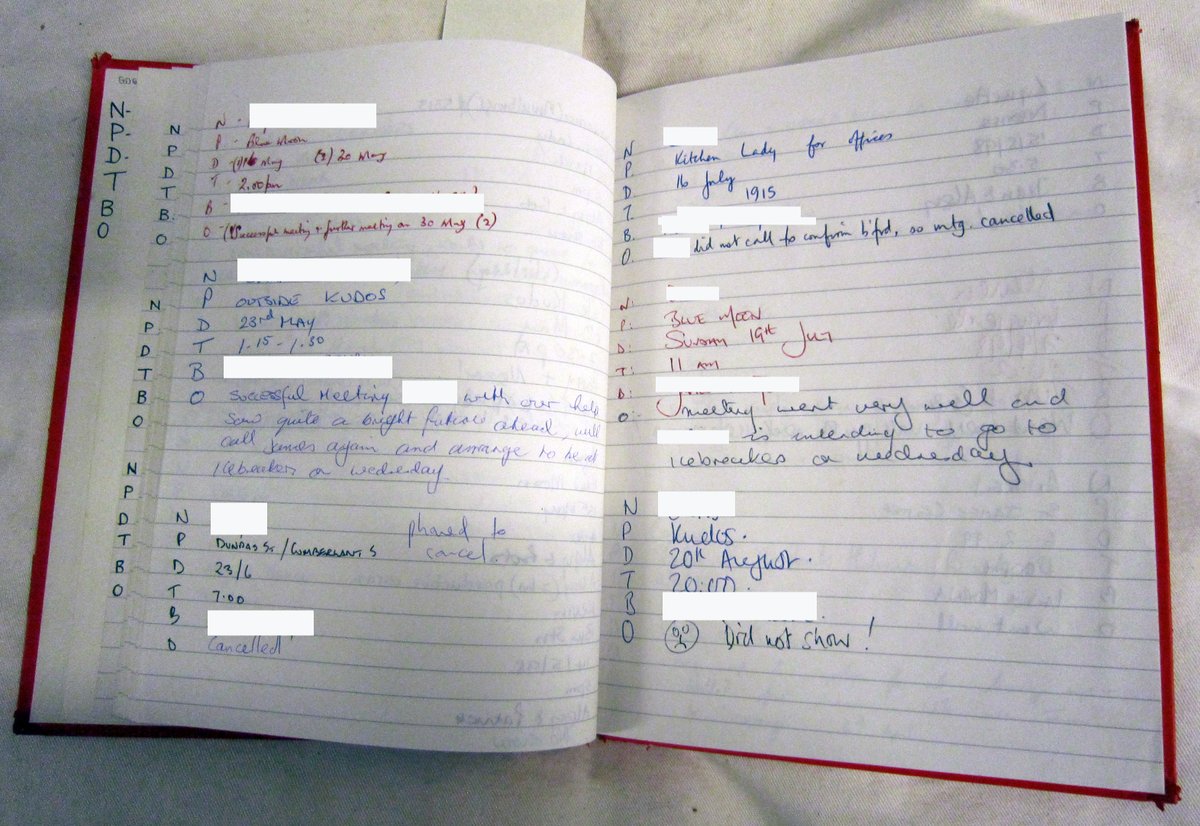 GDG
N-
P-
D-
T
B
O
N
P
D
T
B.
O
N
P
D
T
B
O
N
P
D
T
B
O
N -
P - Blue Moon
D - (1) 16 May (2) 20 May
T - 2.00pm
B -
O - (1) Successful meeting + further meeting on 30 May (2)
N
P OUTSIDE KUDOS
D 23rd MAY
T 1.15 - 1.30
B
O SUCCESSFUL MEETING with our help
Saw quite a bright future ahead, will
call James again and arrange to be at
Icebreakers on wednesday.
N
P DUNDAS ST/CUMBERLANT S phoned to
cancel
D 23/6
T 7.00
B
O Cancelled!
N
P. Kitchen Lady for offices
D 16 July
T. 1915
B.
O. did not call to confirm b'frd, so mtg. cancelled
N:
P: BLUE MOON
D: SUNDAY 19th July
T: 11 AM
B:
O: meeting went very well and
is intending to go to
icebreakes on wednesday
N
P Kudos.
D 20th August.
T 20:00.
B
O Did not show!